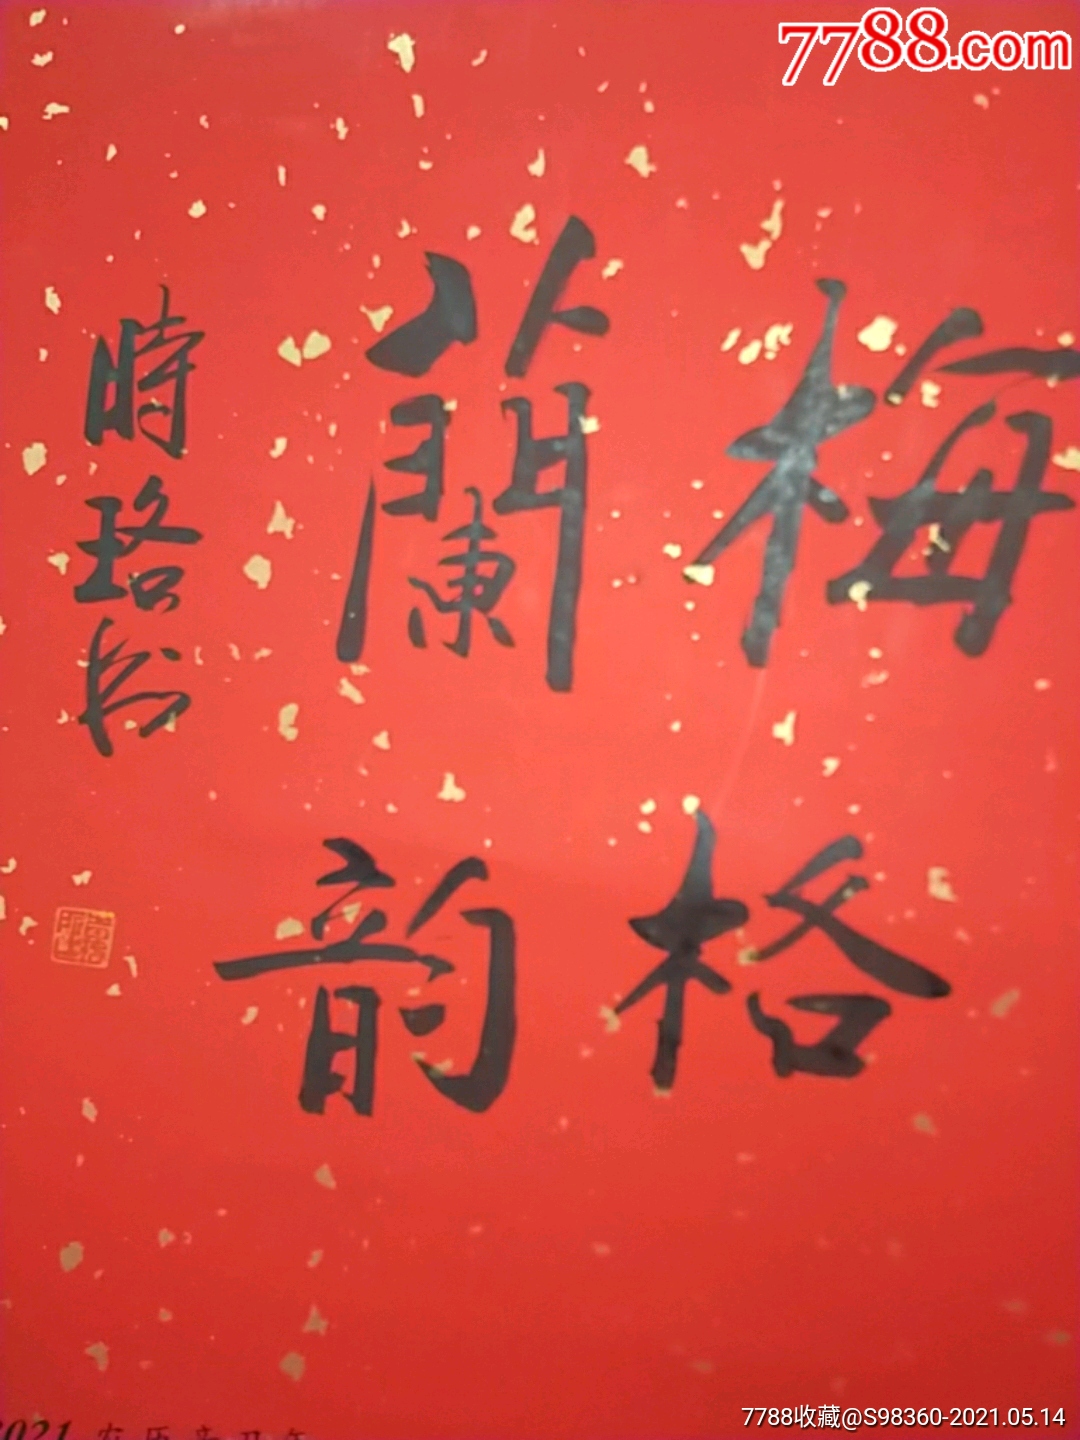 7788.com
梅格
蘭韵
時珞书
2021 农历辛丑年
7788收藏@S98360-2021.05.14